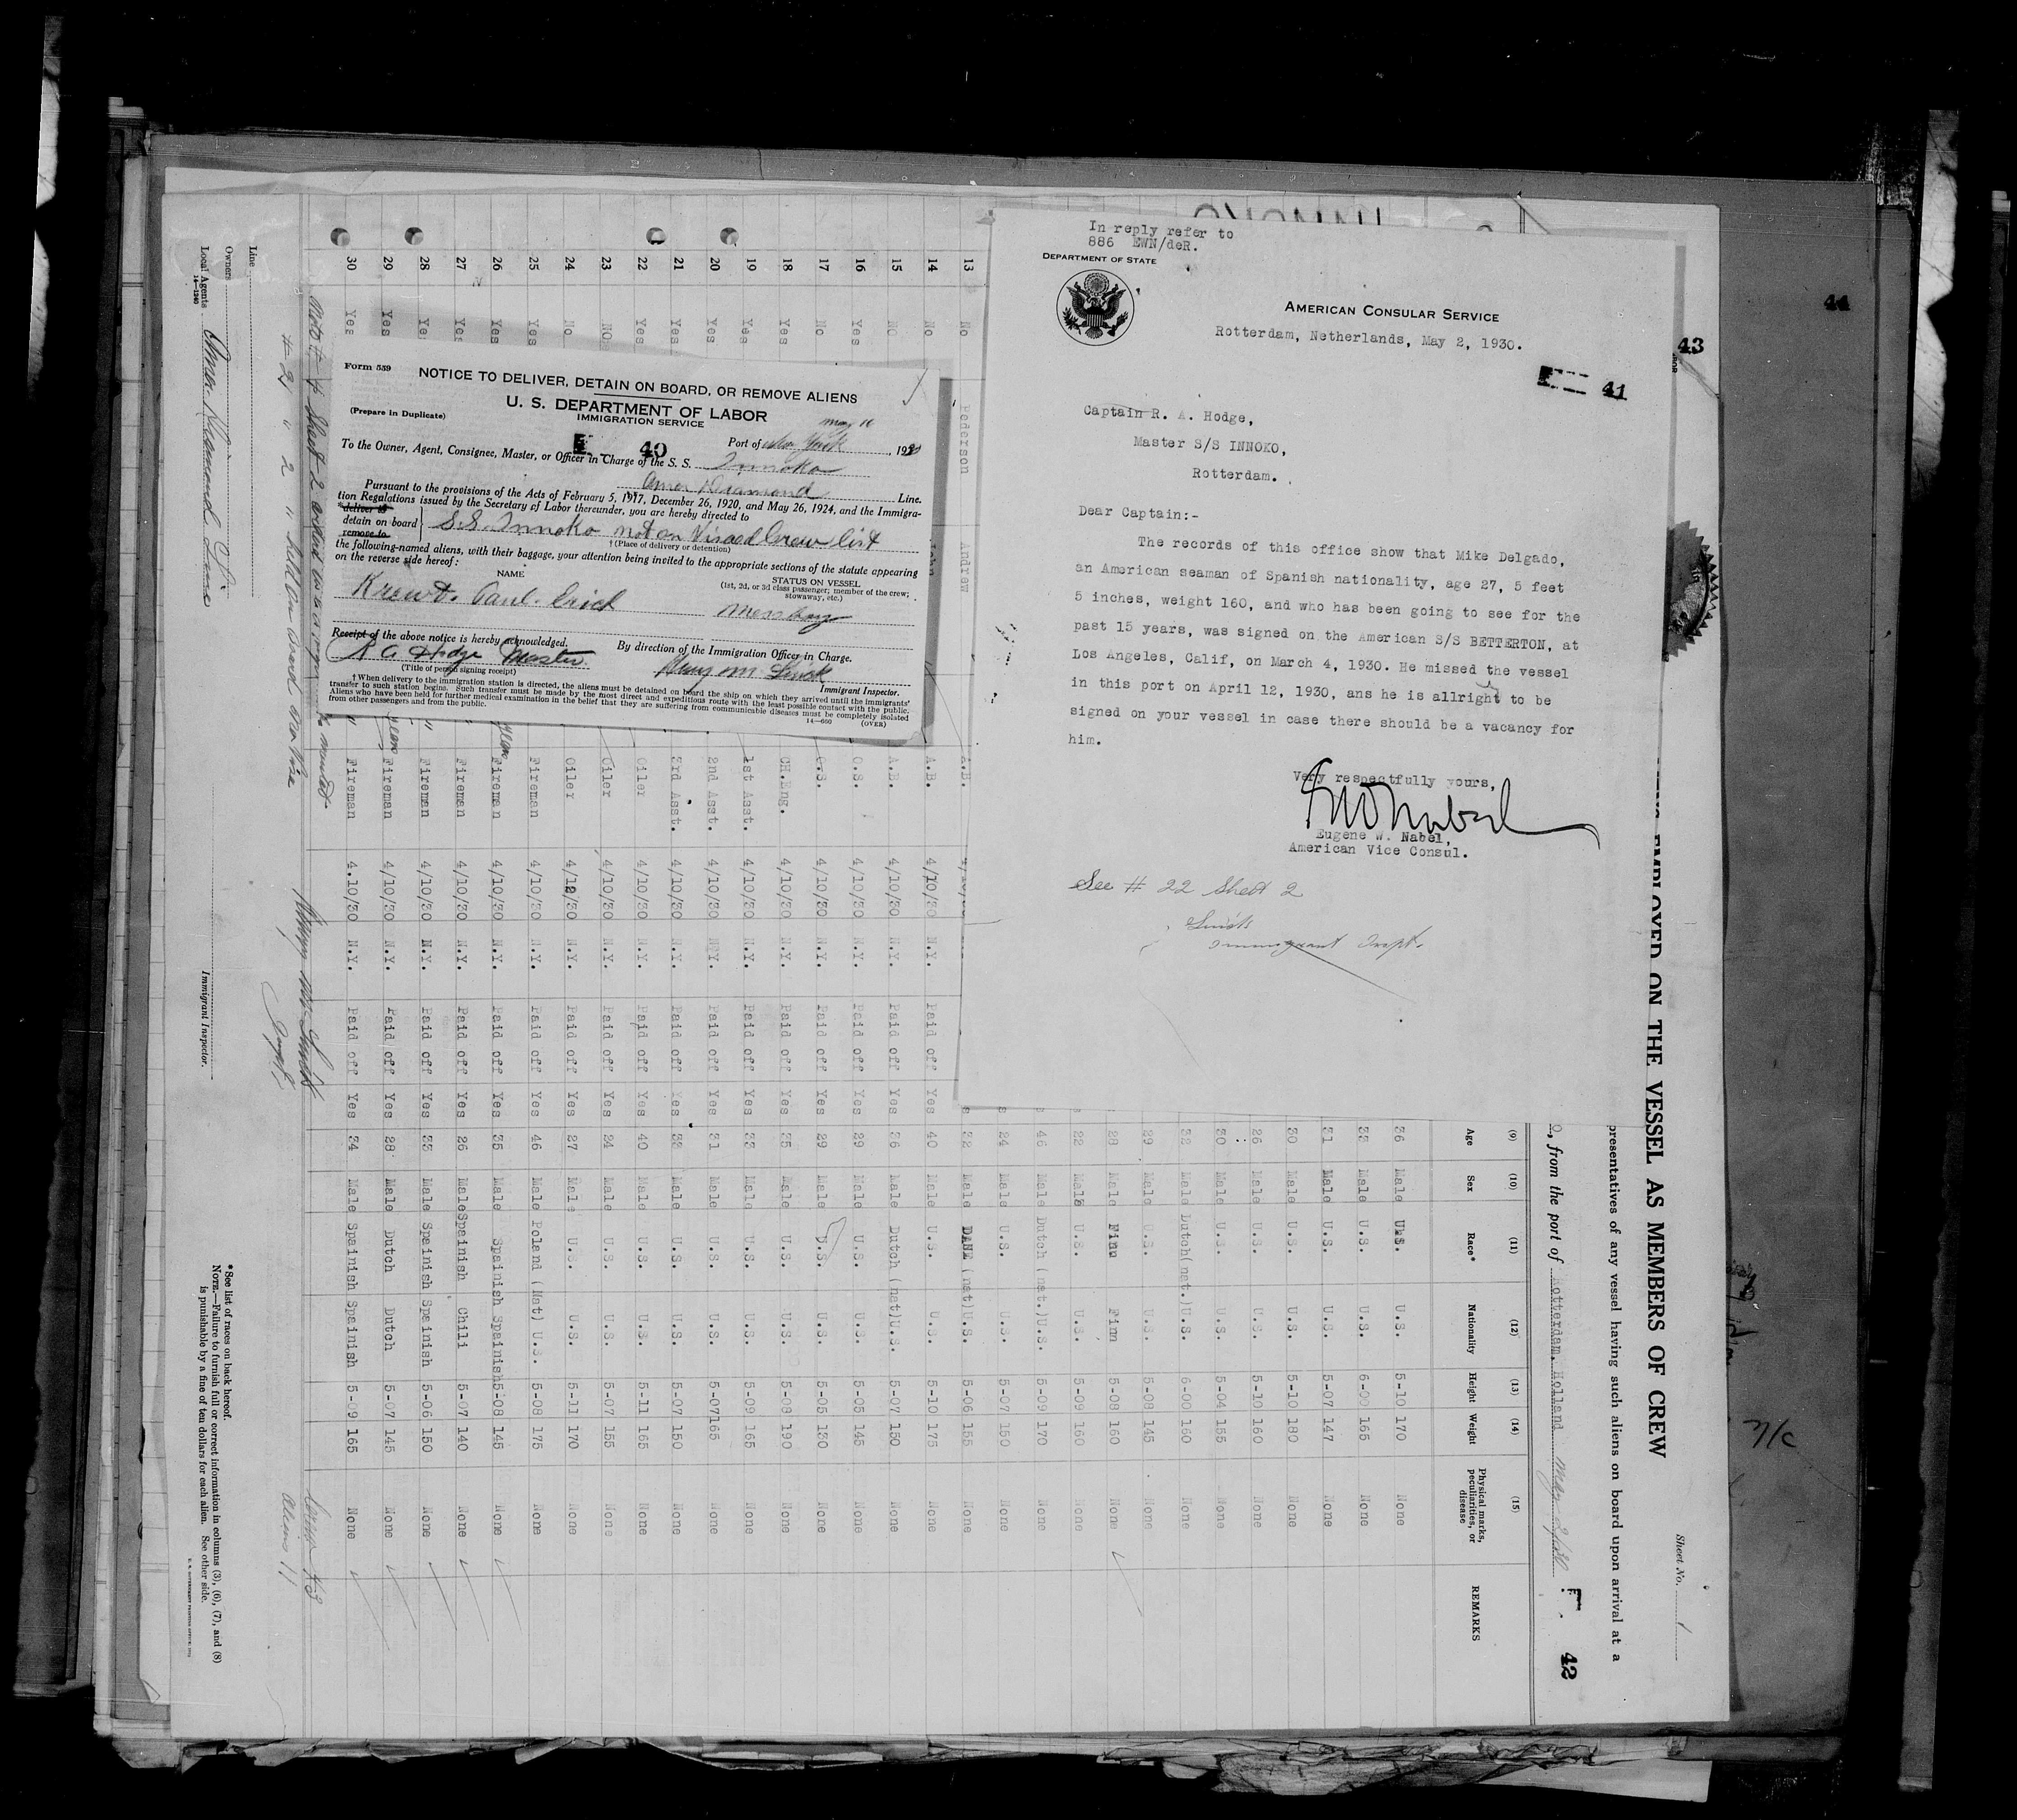 In reply refer to
886 EWN/deR.
DEPARTMENT OF STATE
AMERICAN CONSULAR SERVICE
Rotterdam, Netherlands, May 2, 1930.
41
Captain R. A. Hodge,
Master S/S INNOKO,
Rotterdam.
Dear Captain:-
The records of this office show that Mike Delgado,
an American seaman of Spanish nationality, age 27, 5 feet
5 inches, weight 160, and who has been going to see for the
past 15 years, was signed on the American S/S BETTERTON, at
Los Angeles, Calif, on March 4, 1930. He missed the vessel
in this port on April 12, 1930, ans he is allright to be
signed on your vessel in case there should be a vacancy for
him.
Very respectfully yours,
Eugene W. Nabel,
American Vice Consul.
See # 22 Sheet 2
43
44
Form 559
NOTICE TO DELIVER, DETAIN ON BOARD, OR REMOVE ALIENS
U. S. DEPARTMENT OF LABOR
IMMIGRATION SERVICE
(Prepare in Duplicate)
May 16
40
Port of New York, 1930
To the Owner, Agent, Consignee, Master, or Officer in Charge of the S. S. Innoko
Amer Diamond Line.
Pursuant to the provisions of the Acts of February 5, 1917, December 26, 1920, and May 26, 1924, and the Immigra-
tion Regulations issued by the Secretary of Labor thereunder, you are hereby directed to
*deliver to
detain on board
remove to
S.S. Innoko not on Visaed Crew list
†(Place of delivery or detention)
the following-named aliens, with their baggage, your attention being invited to the appropriate sections of the statute appearing
on the reverse side hereof:
NAME
STATUS ON VESSEL
(1st, 2d, or 3d class passenger; member of the crew;
stowaway, etc.)
Paul Erich
messboy
Receipt of the above notice is hereby acknowledged.
R A Hodge Master
(Title of person signing receipt)
By direction of the Immigration Officer in Charge.
Immigrant Inspector.
†When delivery to the immigration station is directed, the aliens must be detained on board the ship on which they arrived until the immigrants'
transfer to such station begins. Such transfer must be made by the most direct and expeditious route with the least possible contact with the public.
Aliens who have been held for further medical examination in the belief that they are suffering from communicable diseases must be completely isolated
from other passengers and from the public.
14—660
(OVER)
Sheet No. 1
EMPLOYED ON THE VESSEL AS MEMBERS OF CREW
presentatives of any vessel having such aliens on board upon arrival at a
, from the port of Rotterdam, Holland
42
(9) (10) (11) (12) (13) (14) (15)
Age Sex Race* Nationality Height Weight Physical marks, peculiarities, or disease REMARKS
36 Male U.S. U.S. 5-10 170 None
33 Male U.S. U.S. 6-00 165 None
31 Male U.S. U.S. 5-07 147 None
30 Male U.S. U.S. 5-10 180 None
26 Male U.S. U.S. 5-10 160 None
30 Male U.S. U.S. 5-04 155 None
32 Male Dutch(nat.)U.S. 6-00 160 None
29 Male U.S. U.S. 5-08 145 None
28 Male Finn Finn 5-08 160 None
22 Male U.S. U.S. 5-09 160 None
46 Male Dutch (nat.)U.S. 5-09 170 None
24 Male U.S. U.S. 5-07 150 None
13 No Pederson Andrew A.B. 32 Male DANE (nat)U.S. 5-06 155 None
14 No John A.B. 4/10/30 N.Y. Paid off Yes 40 Male U.S. U.S. 5-10 175 None
15 No A.B. 4/10/30 N.Y. Paid off Yes 36 Male Dutch (nat)U.S. 5-07 150 None
16 Yes O.S. 4/10/30 N.Y. Paid off Yes 29 Male U.S. U.S. 5-05 145 None
17 No O.S. 4/10/30 N.Y. Paid off Yes 29 Male U.S. U.S. 5-05 130 None
18 Yes CH.Eng. 4/10/30 N.Y. Paid off Yes 35 Male U.S. U.S. 5-08 190 None
19 Yes 1st Asst. 4/10/30 N.Y. Paid off Yes 33 Male U.S. U.S. 5-09 165 None
20 Yes 2nd Asst. 4/10/30 N.Y. Paid off Yes 31 Male U.S. U.S. 5-07165 None
21 Yes 3rd Asst. 4/10/30 N.Y. Paid off Yes 32 Male U.S. U.S. 5-07 150 None
22 Yes Oiler 4/10/30 N.Y. Paid off Yes 40 Male U.S. U.S. 5-11 165 None
23 NO Oiler 4/10/30 N.Y. Paid off Yes 24 Male U.S. U.S. 5-07 155 None
24 No Oiler 4/12/30 N.Y. Paid off Yes 27 Male U.S. U.S. 5-11 170 None
25 Yes Fireman 4/10/30 N.Y. Paid off Yes 46 Male Poland (Nat) U.S. 5-08 175 None
26 Yes Fireman 4/10/30 N.Y. Paid off Yes 35 Male Spainish Spainish 5-08 145 None
27 Yes Fireman 4/10/30 N.Y. Paid off Yes 26 Male Spainish Chili 5-07 140 None
28 Yes " Fireman 4/10/30 N.Y. Paid off Yes 33 Male Spainish Spainish 5-06 150 None
29 Yes Fireman 4/10/30 N.Y. Paid off Yes 28 Male Dutch Dutch 5-07 145 None
30 Yes " Fireman 4.10/30 N.Y. Paid off Yes 34 Male Spainish Spainish 5-09 165 None
Line
Owners
Local Agents Amer. Diamond Line
14—1240
Immigrant Inspector.
Aliens 11
* See list of races on back hereof.
NOTE.—Failure to furnish full or correct information in columns (3), (6), (7), and (8)
is punishable by a fine of ten dollars for each alien. See other side.